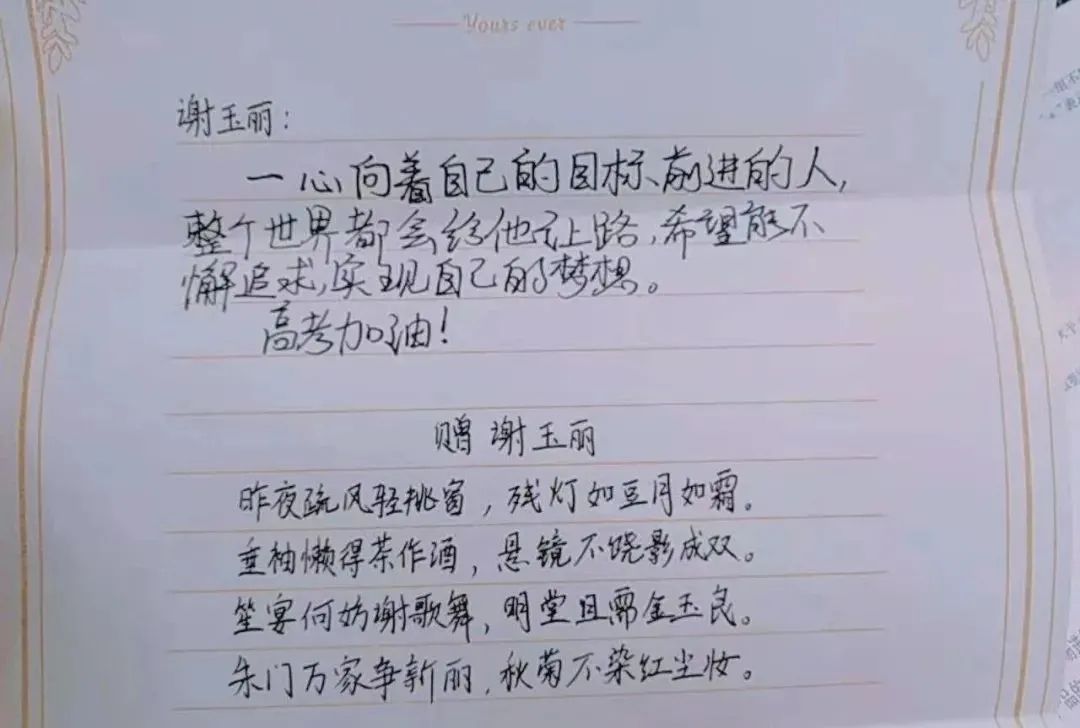 Yours ever
谢玉丽：
一心向着自己的目标前进的人，
整个世界都会给他让路，希望能不
懈追求，实现自己的梦想。
高考加油！
赠谢玉丽
昨夜疏风轻挑窗，残灯如豆月如霜。
垂袖懒得茶作酒，悬镜不饶影成双。
笙宴何妨谢歌舞，明堂且需金玉良。
朱门万家争新丽，秋菊不染红尘妆。